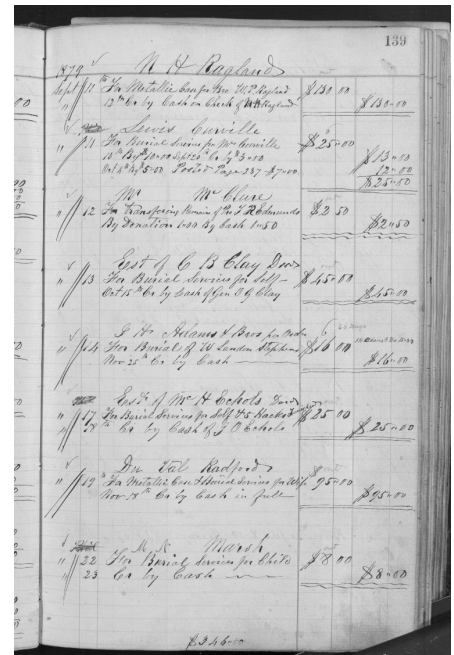 139
1879 N H Ragland
Sept 11 For Metallic Case for Geo. W. P. Ragland $130 00
13th Cr by Cash on Check of N H Ragland $130=00
Lewis Curville
" 11 For Burial Services for Mrs Curville $25=00
15th By $10=00 Sept 20th Cr by $3=00 $13=00
Oct 4th By $5=00 Posted Page 237 - $7=00. 12=00
$25=00
Mr Mc Clure
" 12 For Transfering Remains of Edmunds $2 50
By Donation 1=00 By Cash 1=50 $2=50
Est of C B Clay Dec'd
" 13 For Burial Services for Self $45=00
Oct 15th Cr by Cash of Gen O G Clay $45=00
Adams & Bros per Order
" 14 For Burial of Landon Stephens $16 00
Nov 25th Cr by Cash $16=00
Est of Mc H Echols Dec'd
" 17 For Burial Services for Self & 5 Hacks $25 00
" 18th Cr by Cash of J O Echols $25=00
Du Val Radford
" 19 For Metallic Case & Burial Services for Wife $95=00
Nov 18th Cr by Cash in full $95=00
M K Marsh
" 22 For Burial Services for Child $8 00
" 23 Cr by Cash $8=00
$346=00